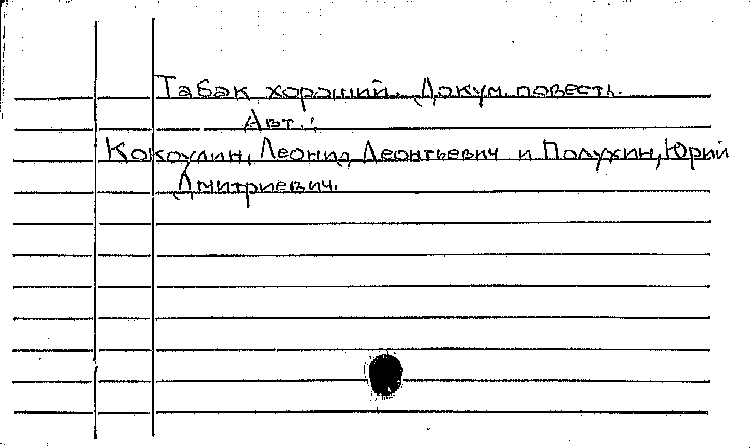 Табак хороший. Докум. повесть.
Авт.:
Кокоулин, Леонид Леонтьевич и Полухин, Юрий
Дмитриевич.